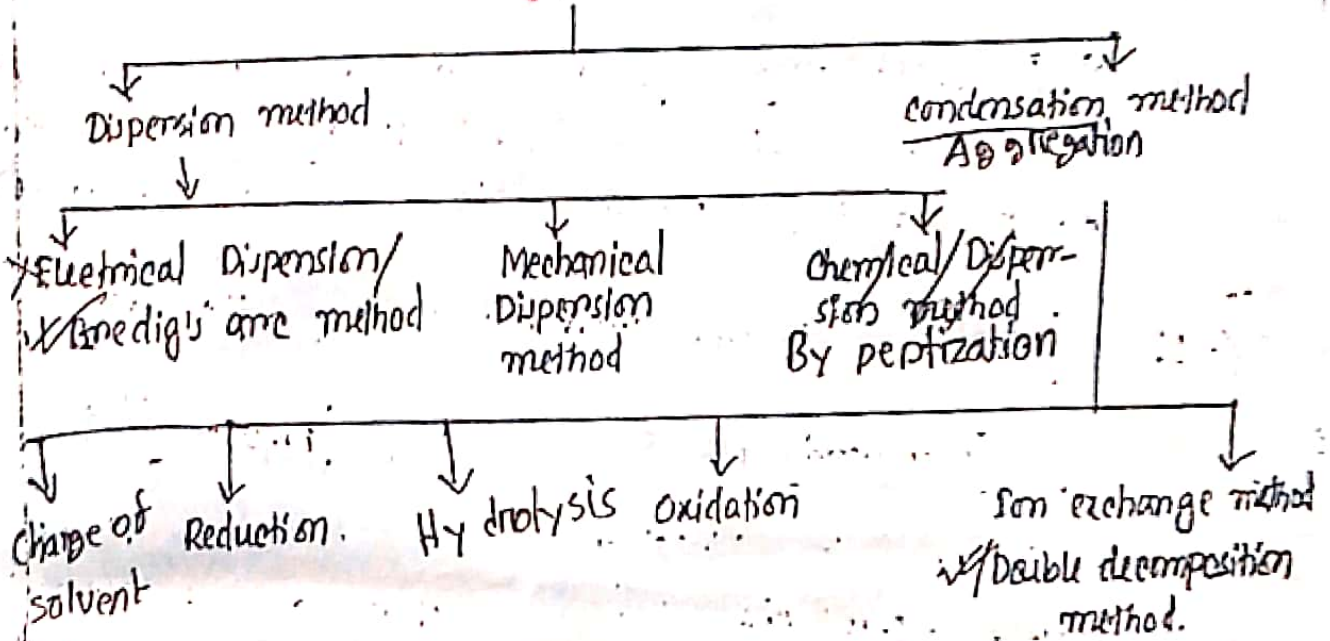 Dispersion method.
condensation method
Aggregation
Electrical Dispension/
Bredig's arc method
Mechanical
Dispersion
method
Chemical/Disper-
sion method.
By peptization
Change of
solvent
Reduction.
Hydrolysis
Oxidation
Ion exchange method
Double decomposition
method.